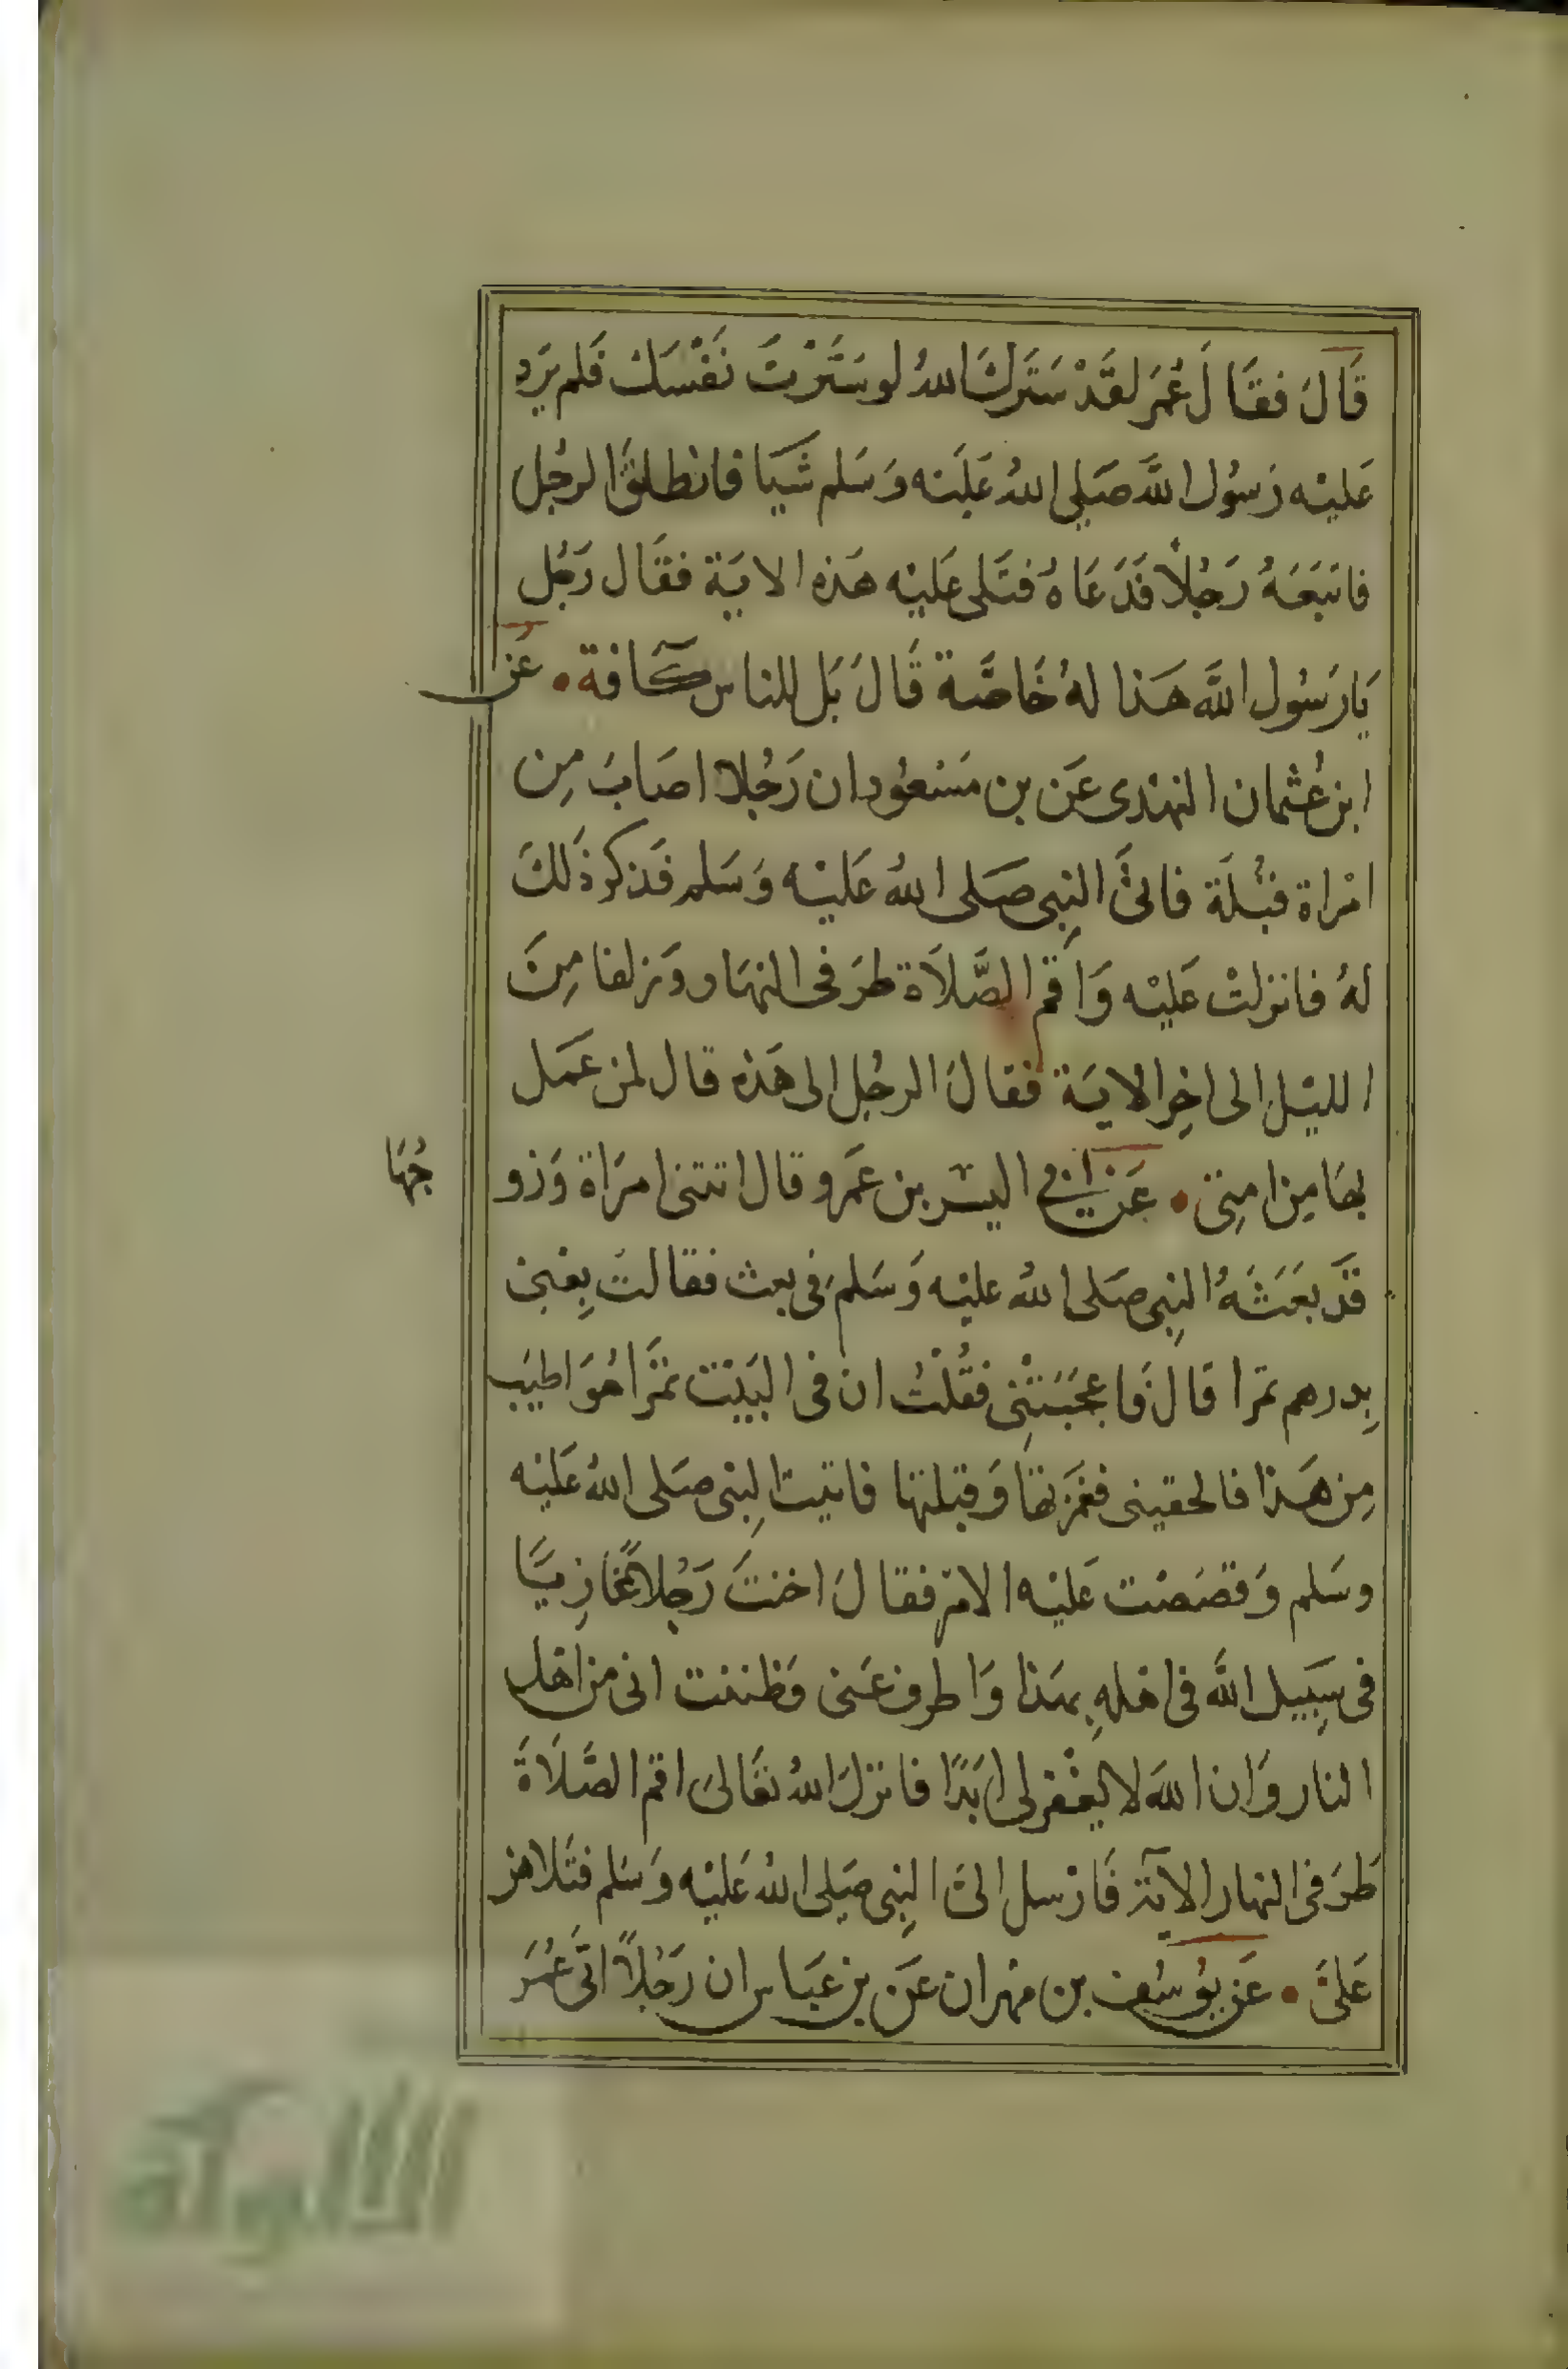 قَالَ فقَالَ عُمَر لقَدْ سَتَرَكَ اللهُ لو سَتَرْتَ نَفْسَك فَلم يَرد
عَليْه رَسُول اللَّه صَلى اللهُ عَليْه وَسَلم شَيَا فانطلقَ الرجُل
فاتبَعَهُ رَجُلاً فَدَعَاهُ فتَلى عَليْه هَذه الايَة فقَال رَجُل
يَارَسُول اللَّه هَذا لهُ خَاصَّة قَالَ بَل للناس كَافة • عَن
ابن عُثمان النهْدى عَن بن مَسْعُود ان رَجُلا اصَابَ مِن
امْراة قبْلَة فاتىَ النِبى صَلى اللهُ عَليْه وَسَلم فَذكر ذَلكَ
لهُ فانزلتْ عَليْه وَاَقم الصَّلاَة طرَفى النهَار وَزلفا مِنَ
الليْل الى اخِر الايَة فقالَ الرجُل الى هَذه قال لمن عَمَل
بهَا مِن امتِى • عَن ابى اليسَر بن عَمَرو قال اتتنى امرَاة وَزو
جُهَا
قَد بَعَثَهُ النِبى صَلى اللهُ عليْه وَسَلم فى بعث فقالتْ بِعْنى
بِدرهم تمرا قالَ فَاعجَبَتْنِى فقُلْتُ ان فى البَيْت تمْرَا هُوَ اطيَب
مِن هَذا فالحقينى فغمَزتهَا وَقبلتها فاتيت النِبى صَلى اللهُ عَليْه
وسَلم وَقصَصْت عَليْه الامْر فقالَ اخنتَ رَجُلاً غَازِيًا
فى سِبَيل اللَّه فى اهْلهِ بهَذا وَاطرف عَنى وَظننت انى من اهل
النار وَان اللهَ لا يَغْفر لى ابَدًا فانزلَ اللهُ تعَالىَ اقم الصَّلاَةَ
طرَفى النهار الآية فَارْسل الىَ النِبى صَلى اللهُ عَليْه وَسَلم فتَلاهن
عَلىَ • عَن يُوسُف بن مهْران عَن بن عَبَاس ان رَجُلاً اتَى عُمَر